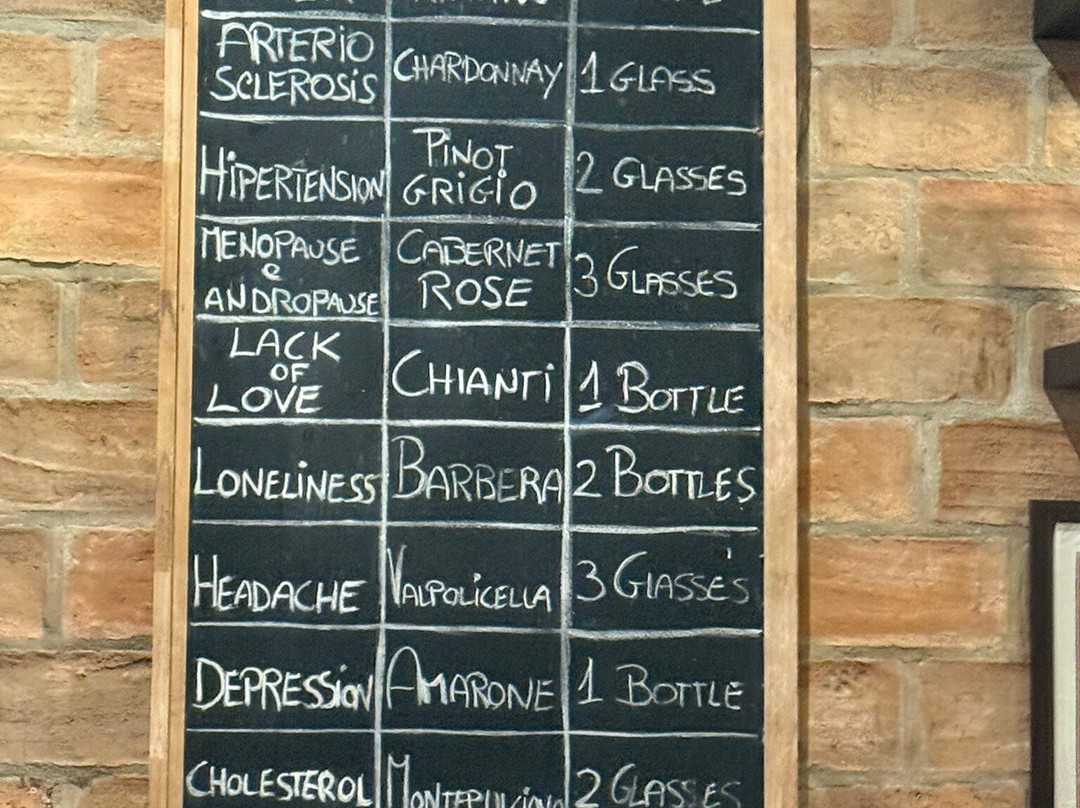 ARTERIO SCLEROSIS CHARDONNAY 1 GLASS
HIPERTENSION PINOT GRIGIO 2 GLASSES
MENOPAUSE e ANDROPAUSE CABERNET ROSE 3 GLASSES
LACK OF LOVE CHIANTI 1 BOTTLE
LONELINESS BARBERA 2 BOTTLES
HEADACHE VALPOLICELLA 3 GLASSES
DEPRESSION AMARONE 1 BOTTLE
CHOLESTEROL MONTEPULCIANO 2 GLASSES